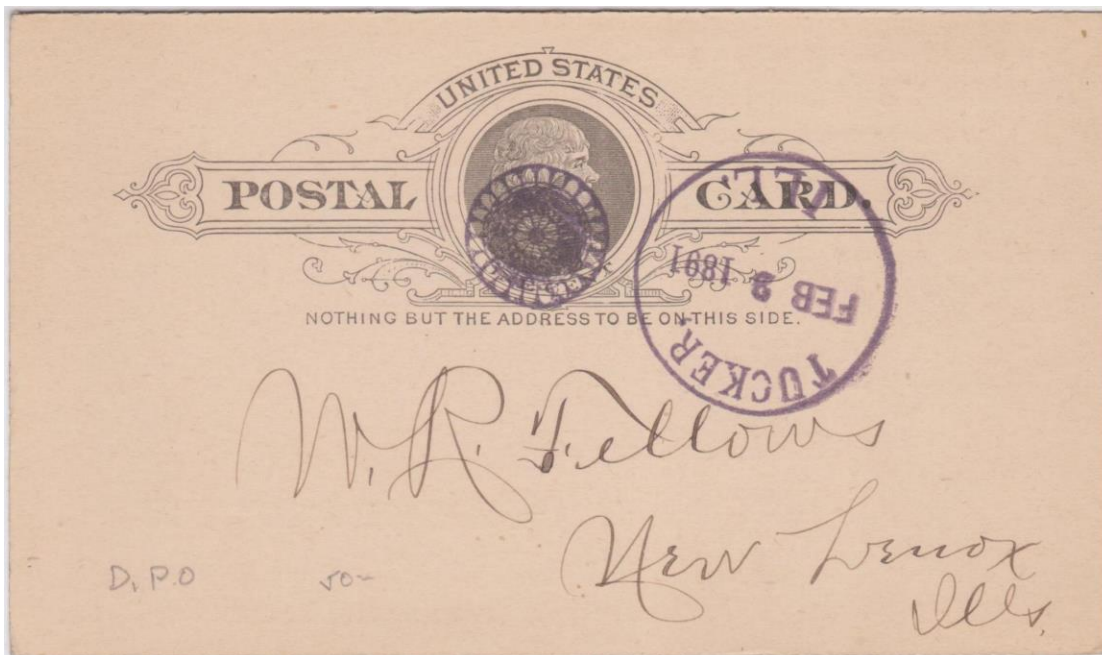 UNITED STATES
POSTAL CARD.
NOTHING BUT THE ADDRESS TO BE ON THIS SIDE.
TUCKER.
FEB 2
1891
ILL.
W. R. Fellows
New Lenox
Ills.
D. P. O 50-